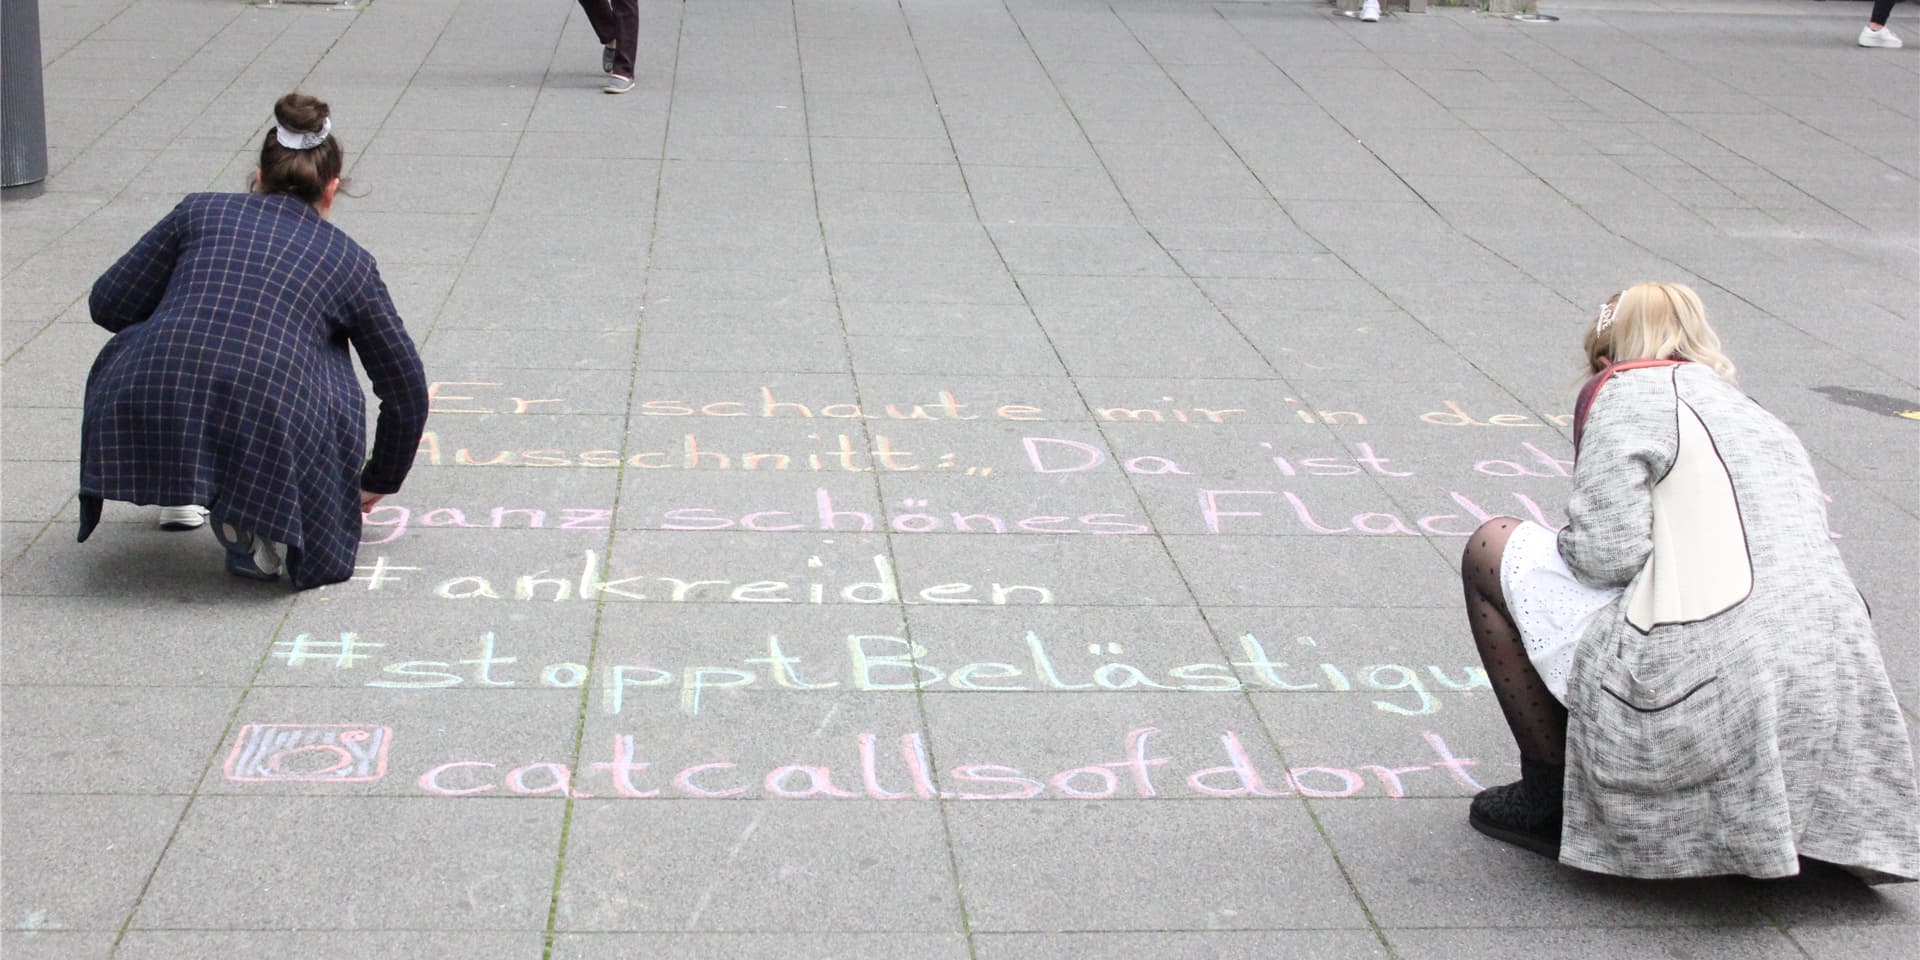 Er schaute mir in den
Ausschnitt: „Da ist
ganz schönes
#ankreiden
#stoppt
catcallsofdort